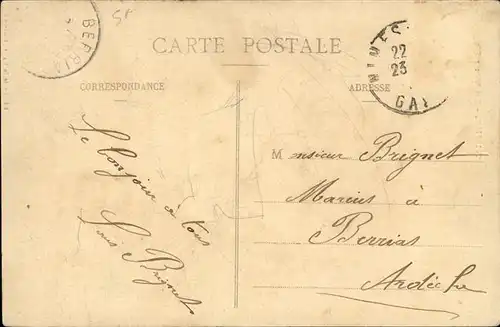 BERRIA
CARTE POSTALE
NIMES
22
23
GA
CORRESPONDANCE
ADRESSE
Le bonjour à tous
Louis Brignet
Monsieur Brignet
Marius à
Berrias
Ardèche